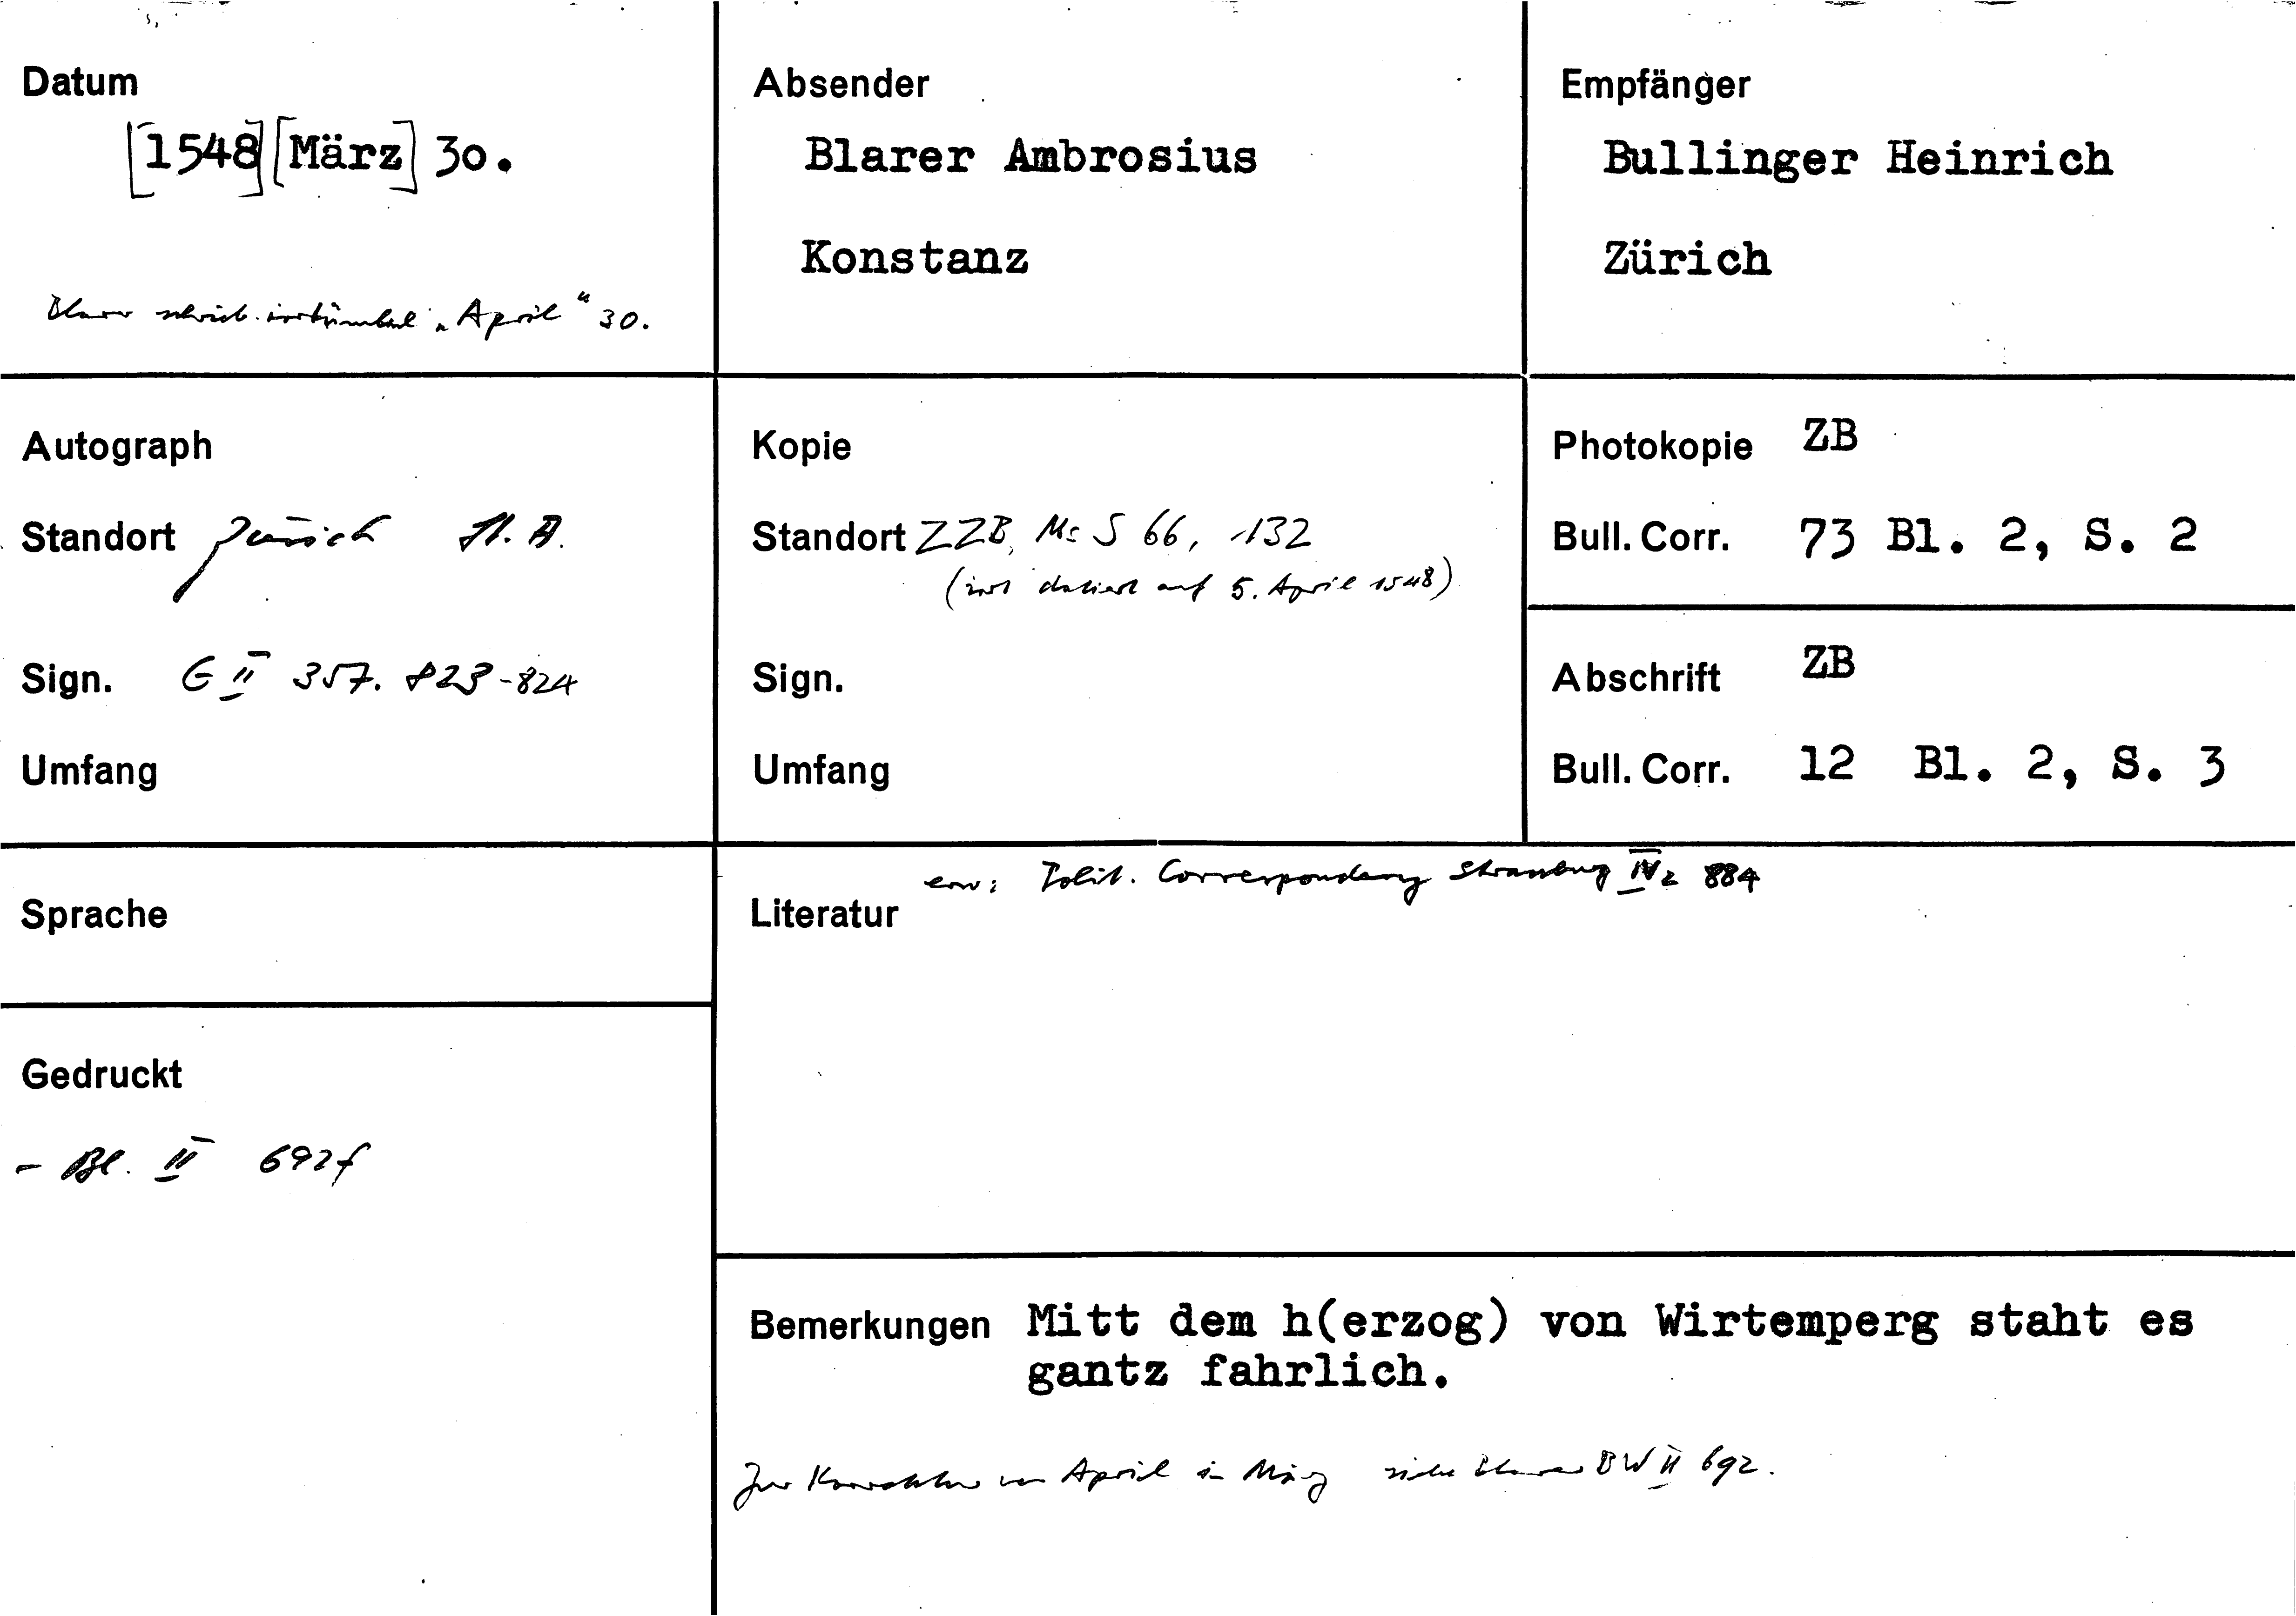 Datum
[1548] [März] 30.
Blarer schrieb irrtümlich „April“ 30.
Absender
Blarer Ambrosius
Konstanz
Empfänger
Bullinger Heinrich
Zürich
Autograph
Standort Zürich St. A.
Sign. E II 357. 823-824
Umfang
Kopie
Standort ZZB, Ms S 66, 132
(irrt datiert auf 5. April 1548)
Sign.
Umfang
Photokopie ZB
Bull. Corr. 73 Bl. 2, S. 2
Abschrift ZB
Bull. Corr. 12 Bl. 2, S. 3
Sprache
Gedruckt
- Bl. II 692f
erw: Polit. Correspondenz Strassburg IV2 884
Literatur
Bemerkungen Mitt dem h(erzog) von Wirtemperg staht es
gantz fahrlich.
Zur Korrektur von April in März siehe Blarer BW II 692.